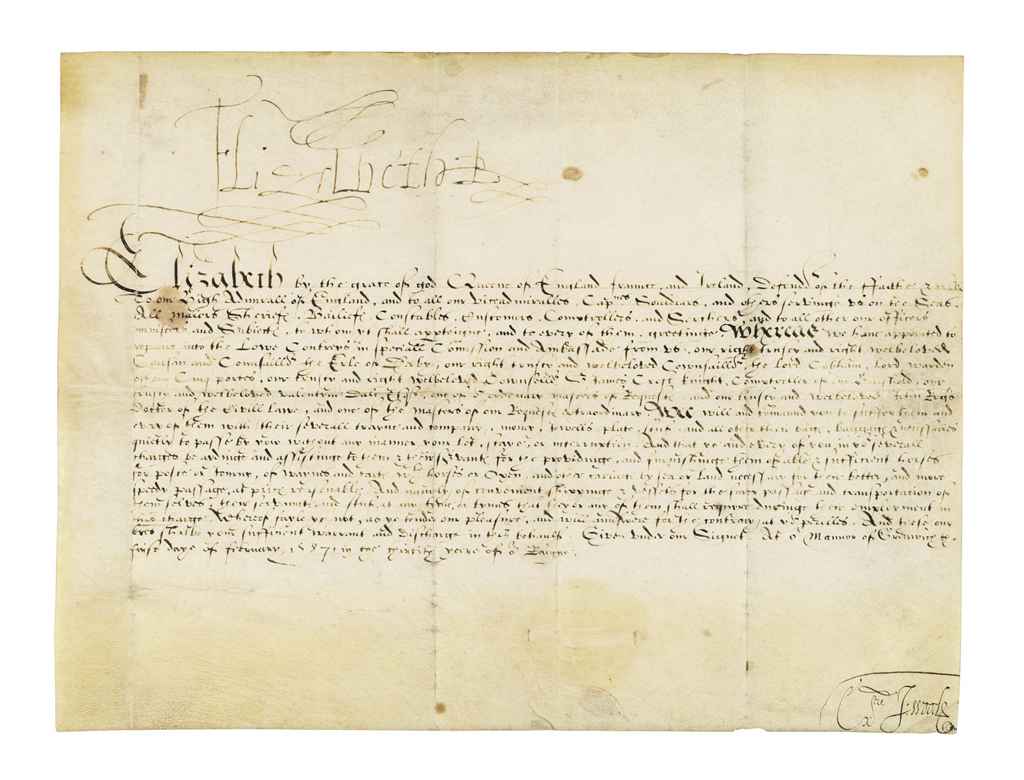 Elizabeth R
Elizabeth by the grace of god Queene of England Fraunce, and Ireland, Defendr of the Faithe &
To our High Admirall of England, and to all our Viceadmiralles, Capnes Souldiars, and others servinge us on the Seas.
All Maiors Sheriefs, Bailiefs, Constables, Customers, Comptrollers, and Serchers, and to all other our officers
ministers and Subiects, to whom yt shall apperteigne, and to every of them, greetinge. Whereas We have appointed to
repaire into the Lowe Contreys in speciall Comission and Ambassade from us, our right trusty and right welbeloved
Cousin and Counsaillor the Erle of Darby, our right trusty and welbeloved Counsaillor, the Lord Cobham, Lord warden
of our Cinq portes, our trusty and right welbeloved Counsellr Sr James Croft knight, Comptroller of our, our
trusty and welbeloved Valentyne Dale, one of thordinary masters of Requests, and our trusty and welbeloved John Rogs
Doctor of the Civill Lawe, and one of the Masters of our Requests extraordinarie. We will and comaund you to suffer them and
every of them with their severall trayne and company, money, Jwells plate, stuff, and all other their bags, baggage & necessaries
quietly to passe by you without any manner your let, staye, or interruption. And that ye and every of you in yor severall
charges be ayding and assisting to them & their servants for the providinge, and furnishinge them of able & sufficient horses
for poste or iorney, of waynes and carts, wth horses or Oxen, and other cariage by sea or land necessary for their better, and more
spedy passage, at prices reasonable. And namely of convenient shippinge & vessells for the safe passage and transportation of
themselves, their servants, and stuff, at any tyme, or tymes that they or any of them shall require duringe their employment in
this charge. Wherof fayle ye not, as ye tender our pleasure, and will aunswere for the contrary at yor perilles. And these our
lres shalbe your sufficient warrant and discharge in this behaulf. Given under our Signet. At or Mannor of Grenwich the
first daye of february, 1587, in the thirtith yeere of or Raigne.